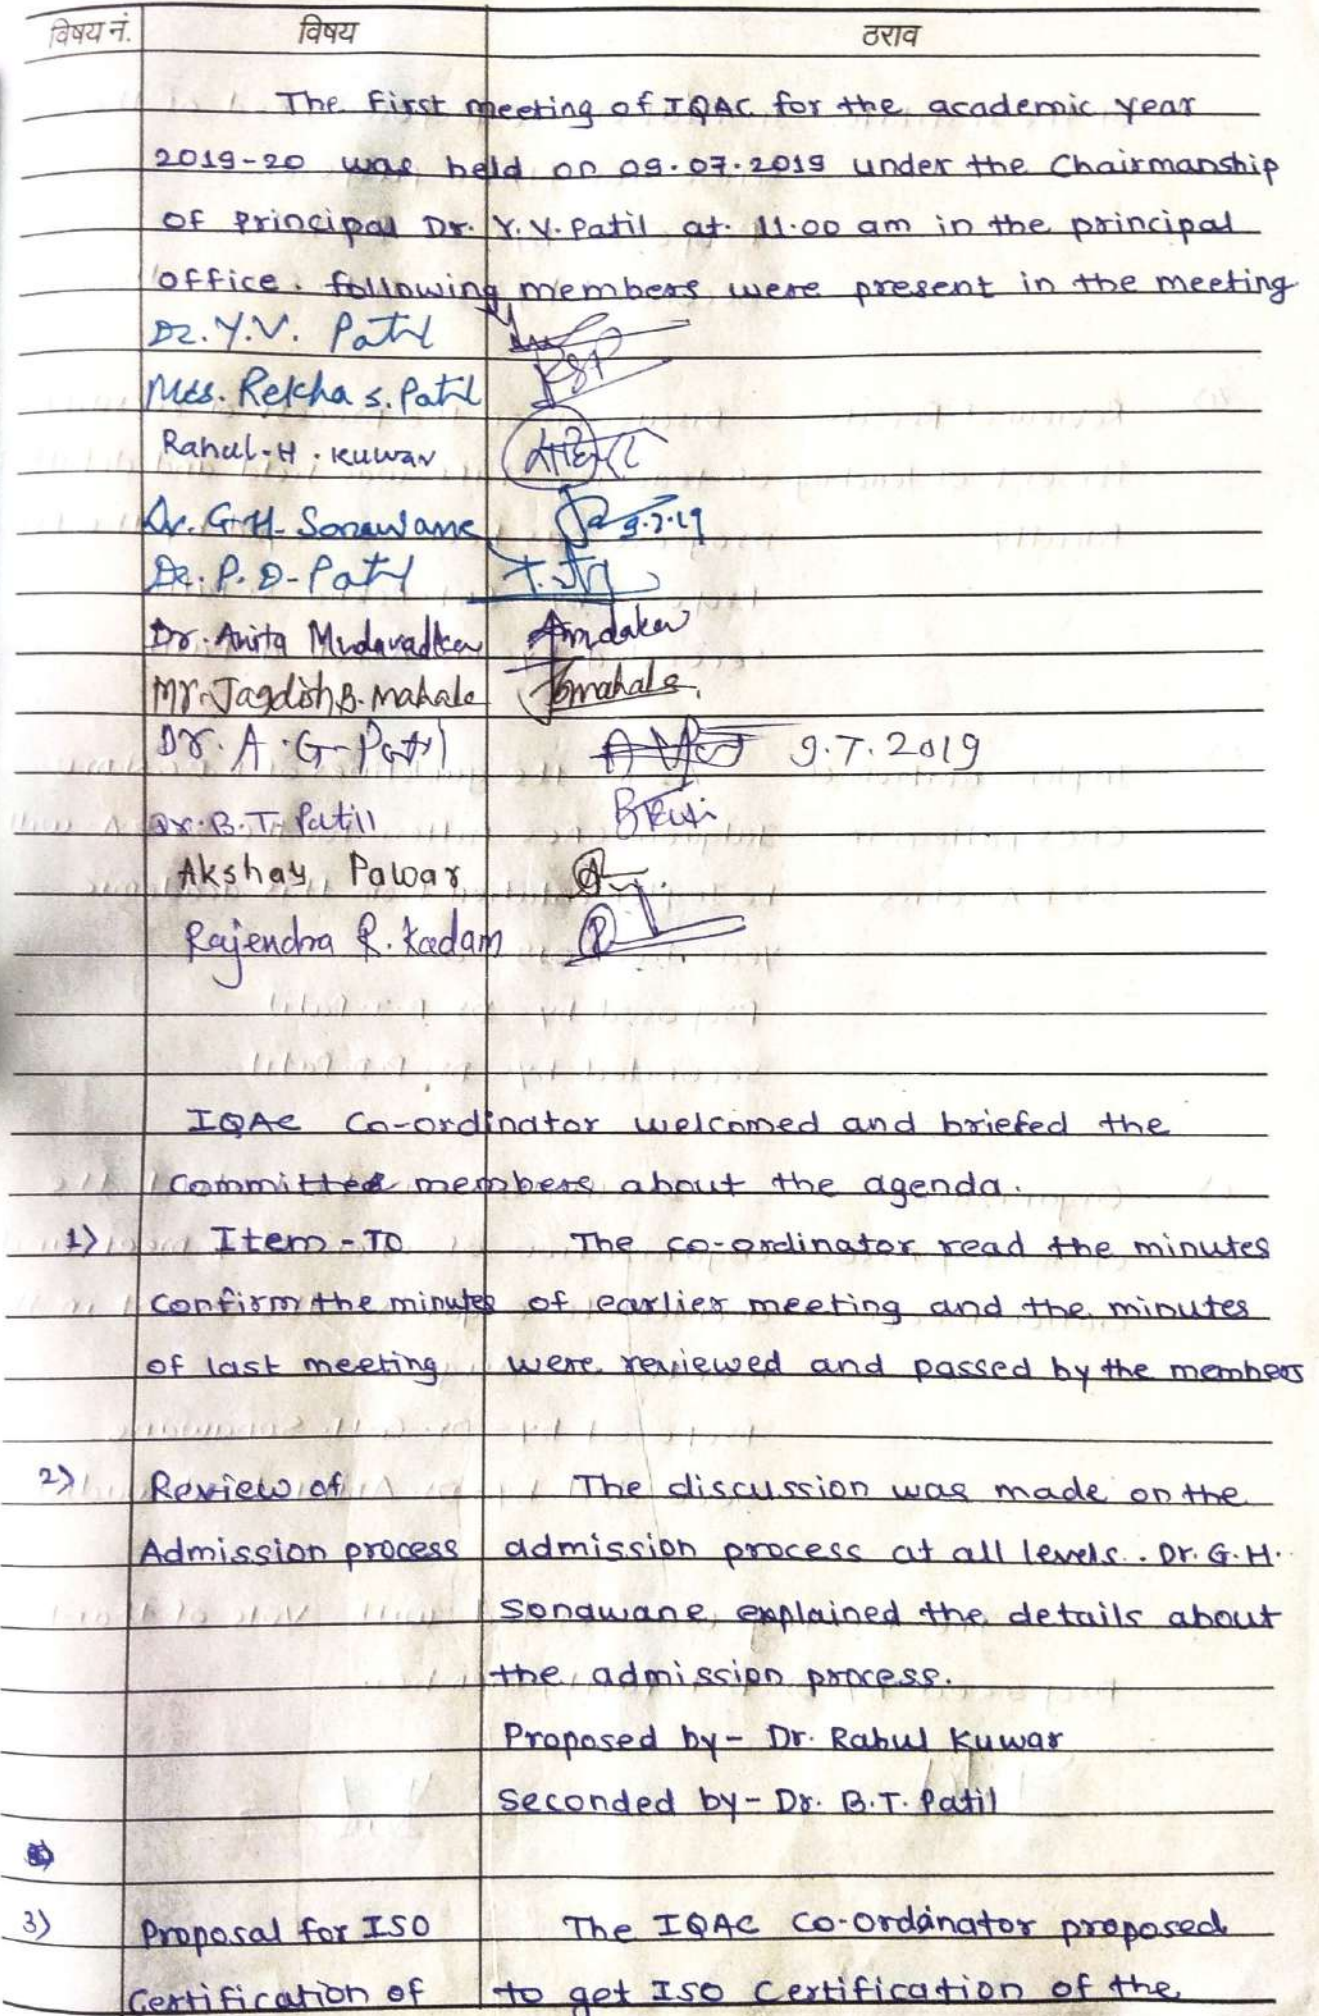 विषय नं. विषय ठराव
The First meeting of IQAC for the academic year
2019-20 was held on 09.07.2019 under the Chairmanship
of Principal Dr. Y.V. Patil at 11.00 am in the principal
office. following members were present in the meeting
Dr. Y.V. Patil
Mrs. Rekha S. Patil RSP
Rahul. H. Kuwar
Dr. G.H. Sonawane 9.7.19
Dr. P. D. Patil
Dr. Anita Mudavadkar
Mr. Jagdish B. Mahale JBmahale
Dr. A. G. Patil 9.7.2019
Dr. B. T. Patill
Akshay Pawar
Rajendra R. Kadam
IQAC Co-ordinator welcomed and briefed the
Committee members about the agenda.
1) Item - To The co-ordinator read the minutes
Confirm the minutes of earlier meeting and the minutes
of last meeting were reviewed and passed by the members
2) Review of The discussion was made on the
Admission process admission process at all levels. Dr. G. H.
Sonawane explained the details about
the admission process.
Proposed by - Dr. Rahul Kuwar
Seconded by - Dr. B.T. Patil
3) Proposal for ISO The IQAC Co-ordinator proposed
Certification of to get ISO Certification of the